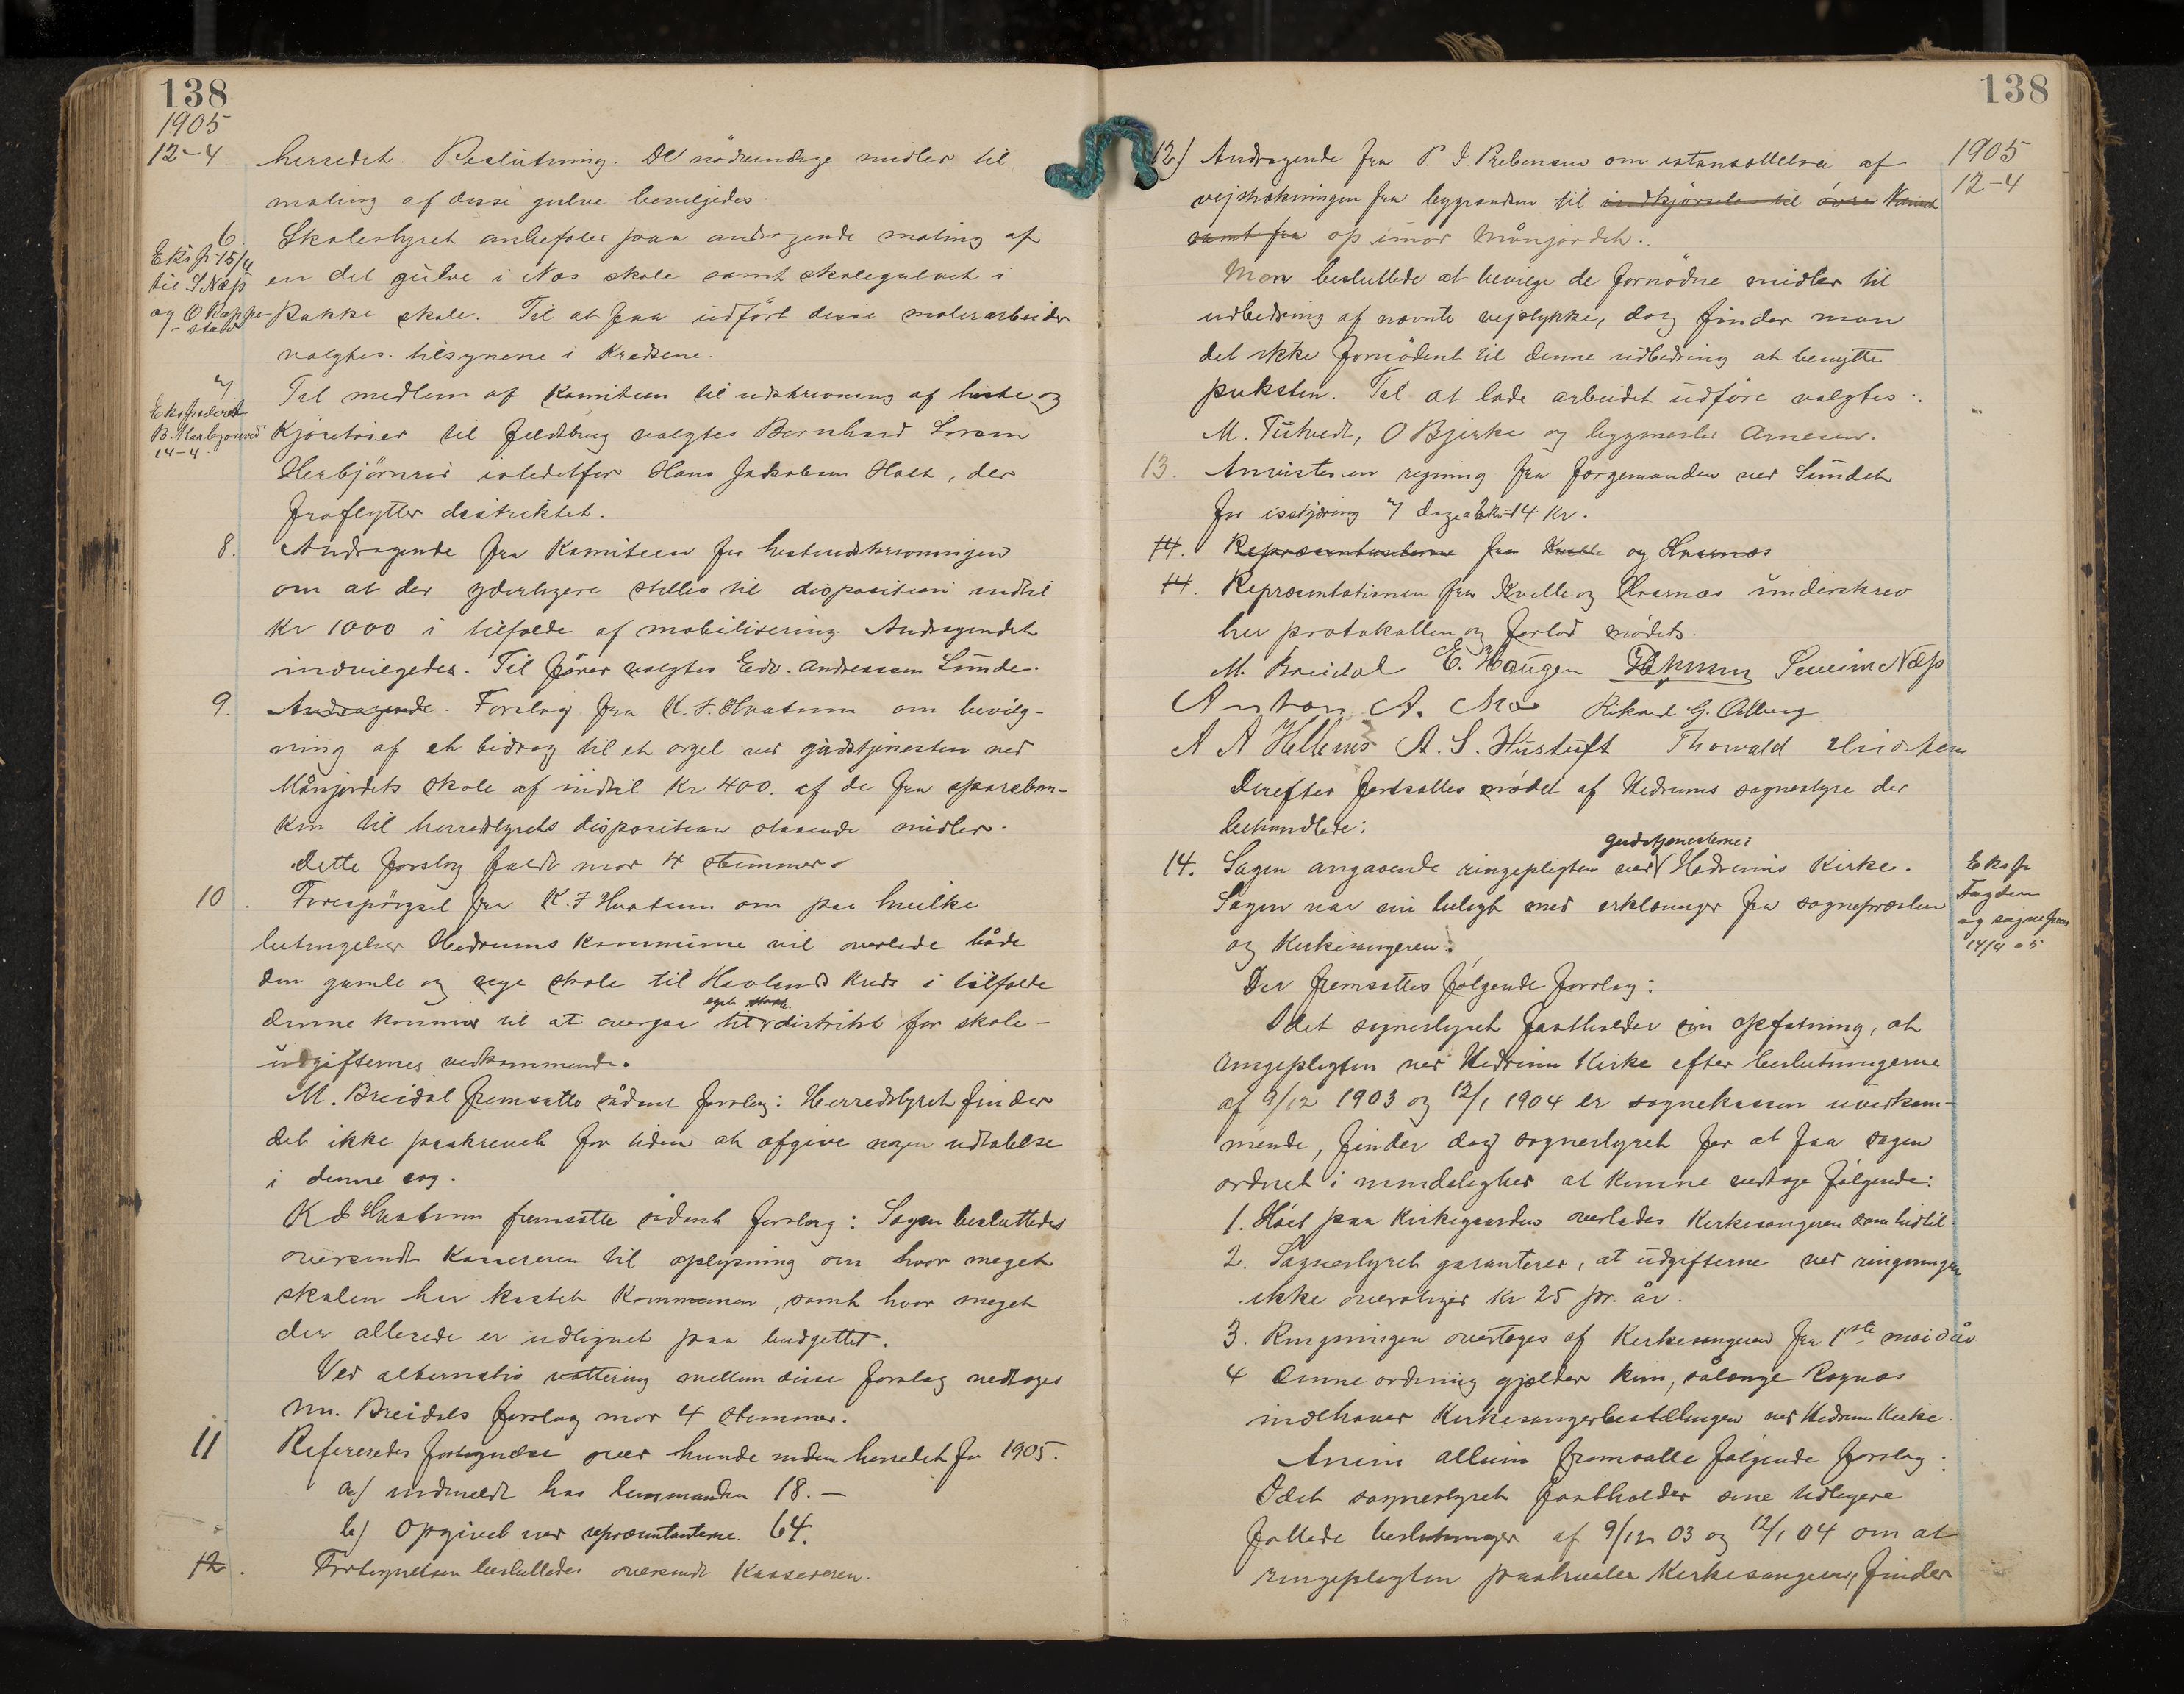 138
1905
12-4
herredet. Beslutning. De nödvendige midler til
maling af disse gulve bevilgedes.
6
Eksp 15/4
til S Næss
og O Kæppe-
stad
Skolestyret anbefaler paa andragende maling af
en del gulve i Næs skole samt skolegulvet i
skole. Til at faa udfört disse malerarbeider
valgtes tilsynene i Kredsene.
7
Ekspederet
14-4
Til medlem af Komiteen til udskrivning af heste og
Kjöretöier til feldtbrug valgtes Bernhard
Herbjörnröd istedetfor Hans Jakobsen Holt, der
fraflytter distriktet.
8.
Andragende fra Komiteen for hesteudskrivningen
om at der yderligere stilles til disposition indtil
Kr 1000 i tilfælde af mobilisering. Andragendet
indvilgedes. Til förer valgtes Edv. Andreassen Lunde.
9.
Andragende. Forslag fra K. F. Hvatum om bevilg-
ning af et bidrag til et orgel ved gudstjenesten ved
Månjordets skole af indtil Kr 400. af de fra spareban-
ken til herredstyrets disposition staaende midler.
Dette forslag faldt mod 4 stemmer.
10.
Forespörgsel fra K. F Hvatum om paa hvilke
betingelser Hedrums Kommune vil overlade både
den gamle og nye skole til Havlands Kreds i tilfælde
eget
denne kommer til at overgaa til distrikt for skole-
udgifternes vedkommende.
M. Breidal fremsatte sådant forslag: Herredstyret finder
det ikke paakrævet for tiden at afgive nogen udtalelse
i denne sag.
K F Hvatum fremsatte sådant forslag: Sagen besluttedes
oversendt Kassereren til oplysning om hvor meget
skolen har kostet Kommunen, samt hvor meget
der allerede er udlignet paa budgettet.
Ved alternativ vottering mellem disse forslag vedtoges
M. Breidals forslag mod 4 stemmer.
11
Refereredes fortegnelse over hunde inden herredet for 1905.
a) indmeldt hos lensmanden 18.-
b) Opgivet ved repræsentanterne. 64.
12.
Fortegnelsen besluttedes oversendt Kassereren.
138
1905
12-4
12) Andragende fra P. I. Prebensen om istandsættelse af
vejstrækningen fra bygrændsen til indkjörselen til övre
samt fra op imod Månjordet.
Man besluttede at bevilge de fornödne midler til
udbedring af nævnte vejstykke, dog finder man
det ikke fornödent til denne udbedring at benytte
puksten. Til at lade arbeidet udföre valgtes:
M. Tutvedt, O Bjerke og bygmester Arnesen.
13. Anvistes en regning fra færgemanden ved Sundet
for isskjæring 7 dage a 2 Kr = 14 Kr.
14. Repræsentanterne fra Kvelle og Hvarnæs
14. Repræsentationen fra Kvelle og Hvarnæs underskrev
her protokollen og forlod mödet.
M. Breidal E. Haugen Severin Næss
Anton A. Moe Rikard G. Alberg
A A Hellenes A. S. Hustuft Thorvald
Derefter fortsattes mödet af Hedrums sognestyre der
behandlede:
gudstjenesterne i
14. Sagen angaaende ringepligten ved Hedrums Kirke.
Eksp
Fogden
og sognepræs
14/4 05
Sagen var nu bilagt med erklæringer fra sognepræsten
og Kirkesangeren.
Der fremsattes fölgende forslag:
Idet sognestyret fastholder sin opfatning, at
ringepligten ved Hedrum Kirke efter beslutningerne
af 9/12 1903 og 12/1 1904 er sognekassen uvedkom-
mende, finder dog sognestyret for at faa sagen
ordnet i mindelighed at kunne vedtage fölgende:
1. Höet paa Kirkegaarden overlades Kirkesangeren som hidtil.
2. Sognestyret garanterer, at udgifterne ved ringningen
ikke overstiger Kr 25 pr. år.
3. Ringningen overtages af Kirkesangeren fra 1ste mai d år
4 Denne ordning gjælder kun, sålænge Rognæs
indehaver Kirkesangerbestillingen ved Hedrum Kirke.
fremsatte fölgende forslag:
Idet sognestyret fastholder sine tidligere
fattede beslutninger af 9/12 03 og 12/1 04 om at
ringepligten paahviler Kirkesangeren, finder